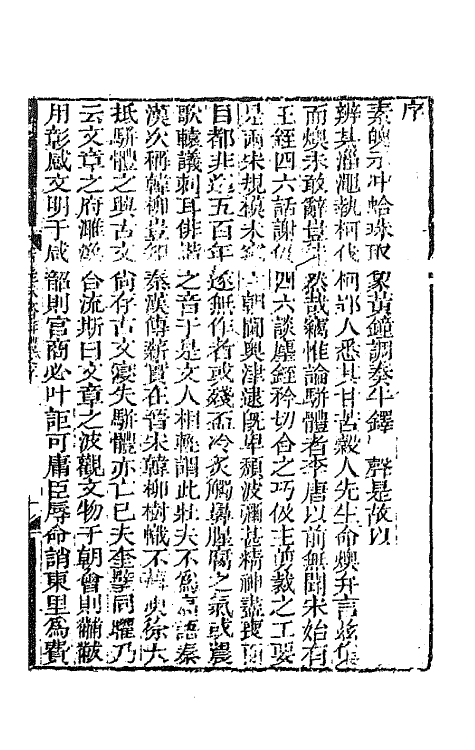 序
素魄示冲蛤珠取象黃鐘調奏牛鐸聲是故以
辨其淄澠執柯伐柯郢人悉其甘苦穀人先生命燠弁言茲集
而燠未敢辭豈不然哉竊惟論駢體者李唐以前無聞宋始有
王銍四六話謝伋四六談麈銍矜切合之巧伋主剪裁之工要
是兩宋規模未窺六朝閫奧津逮旣卑頹波彌甚精神盡喪面
目都非近五百年遂無作者或殘盃冷炙觸鼻腥腐之氣或農
歌轅議刺耳俳諧之音于是文人相輕謂此壯夫不為豈語秦
漢次稱韓柳豈知秦漢傳薪實在晉宋韓柳樹幟不薄庾徐大
抵駢體之與古文尚存古文寖失駢體亦亡已夫奎擘同躔乃
云文章之府濉渙合流斯曰文章之波觀文物于朝會則黼黻
用彰感文明于咸韶則宮商必叶詎可庸臣辱命誚東里為費